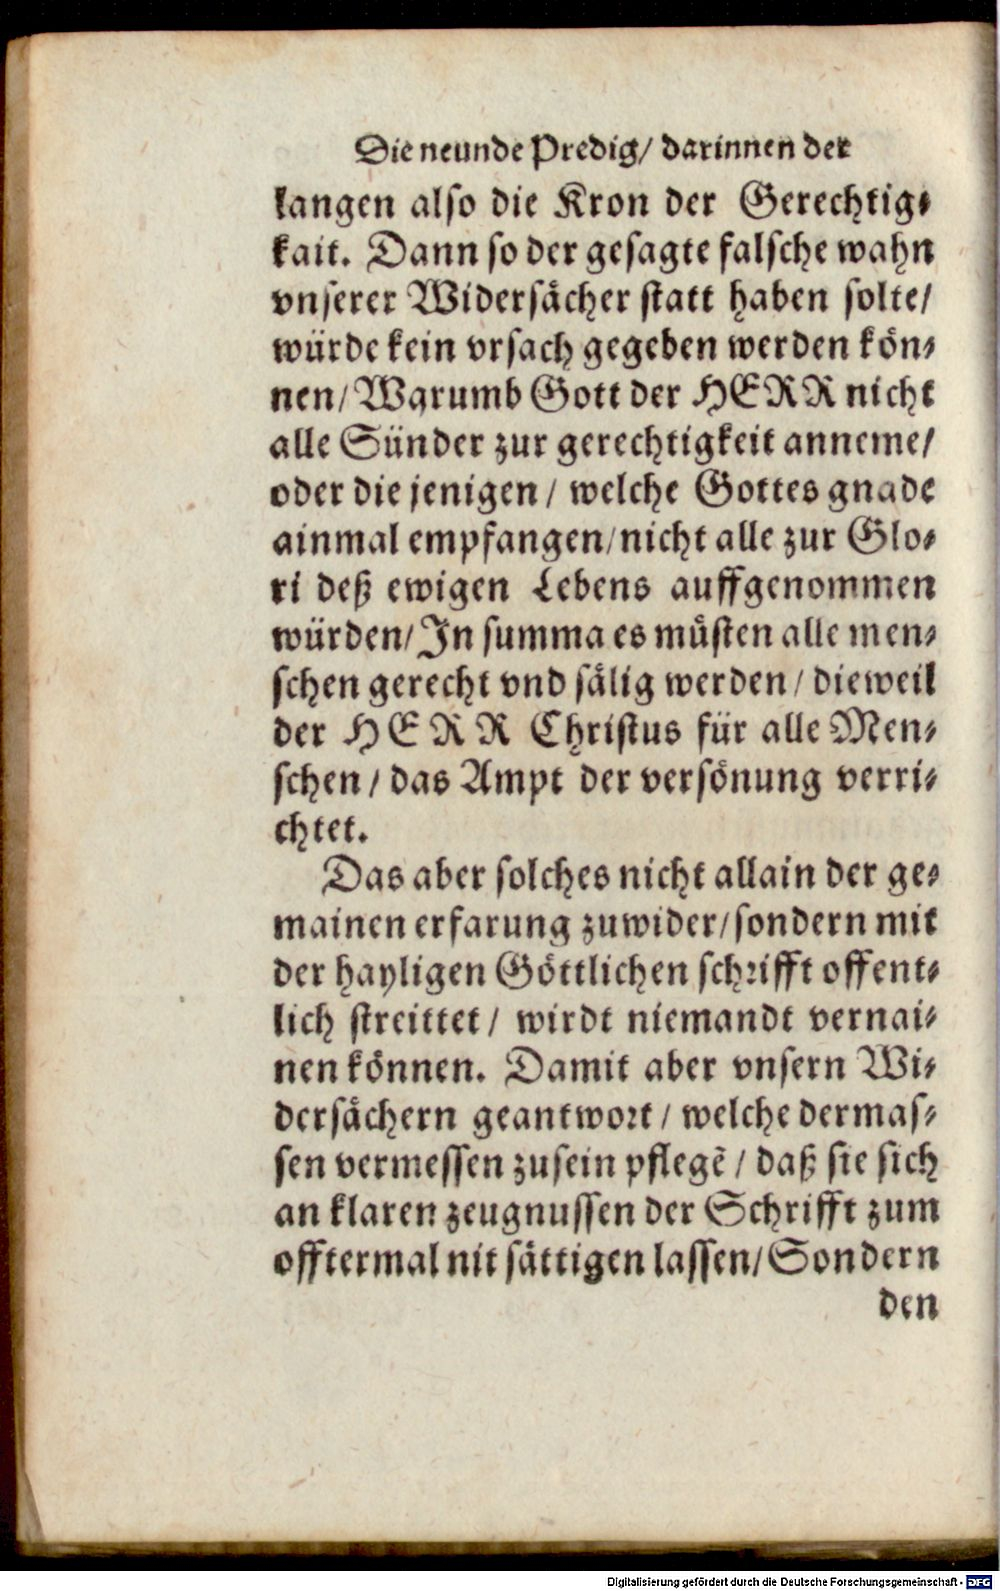 Die neunde Predig/ darinnen der
langen also die Kron der Gerechtig⸗
kait. Dann so der gesagte falsche wahn
vnserer Widersächer statt haben solte/
würde kein vrsach gegeben werden kön⸗
nen/ Warumb Gott der HERR nicht
alle Sünder zur gerechtigkeit anneme/
oder die jenigen/ welche Gottes gnade
ainmal empfangen/ nicht alle zur Glo⸗
ri deß ewigen Lebens auffgenommen
würden/ In summa es müsten alle men⸗
schen gerecht vnd sälig werden/ dieweil
der HERR Christus für alle Men⸗
schen/ das Ampt der versönung verri⸗
chtet.
Das aber solches nicht allain der ge⸗
mainen erfarung zuwider/ sondern mit
der hayligen Göttlichen schrifft offent⸗
lich streittet/ wirdt niemandt vernai⸗
nen können. Damit aber vnsern Wi⸗
dersächern geantwort/ welche dermas⸗
sen vermessen zusein pflegẽ/ daß sie sich
an klaren zeugnussen der Schrifft zum
offtermal nit sättigen lassen/ Sondern
den
Digitalisierung gefördert durch die Deutsche Forschungsgemeinschaft - DFG